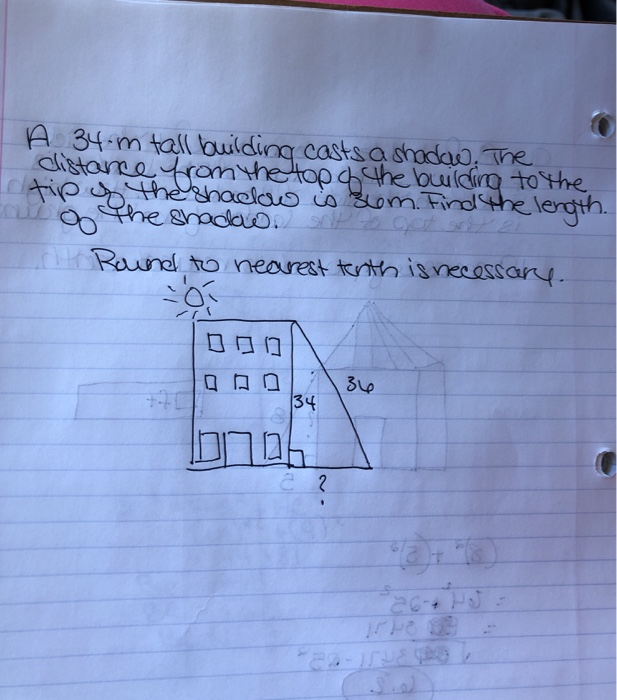 A 34-m tall building casts a shadow. The
distance from the top of the building to the
tip of the shadow is 36m. Find the length.
of the shadow.
Round to nearest tenth is necessary.
34
36
?